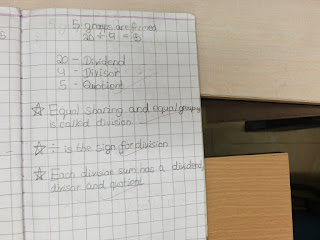 5 groups are formed
20 ÷ 4 = 5
20 - Dividend
4 - Divisor
5 - Quotient
☆ Equal sharing and equal grouping
is called division.
☆ ÷ is the sign for division
☆ Each division sum has a dividend,
divisor and quotient.